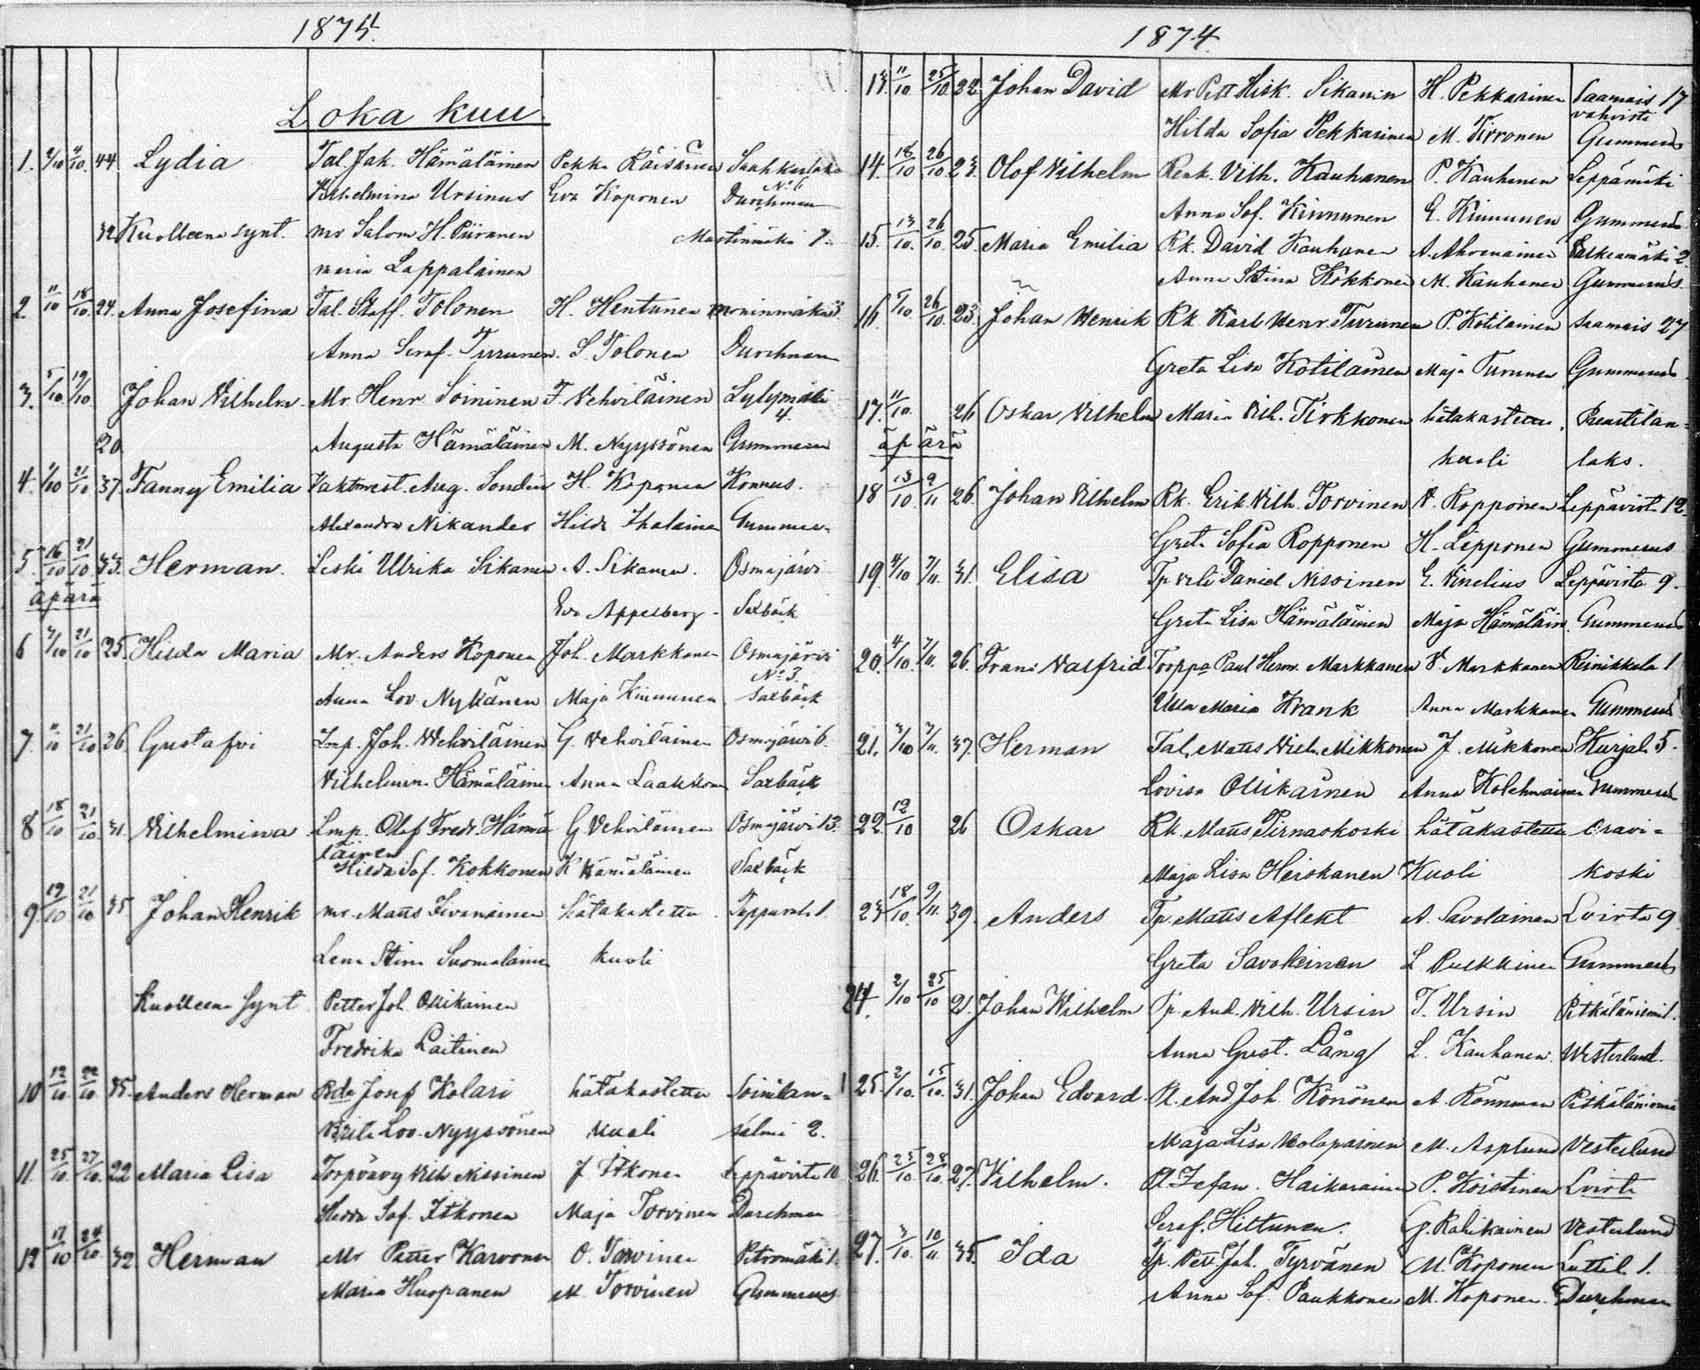 1874.
Loka kuu
1. 2/10 4/10. 44 Lydia Tal. Jak. Hämäläinen Pekka Räisänen
Wilhelmina Ursinus Eva Koponen No 6 Durchman
32 Kuolleena synt. mr Salom. H. Piiranen Martinmäki 7.
Maria Lappalainen
2. 11/10 18/10. 24. Anna Josefina Tal. Staff. Tolonen H. Hentunen Moninmäki 3
Anna Seraf. Turunen. S. Tolonen Durchman
3. 5/10 19/10 Johan Vilhelm Mr. Henr. Soininen F. Vehviläinen Lylymäki 4.
20 Augusta Hämäläinen M. Nyyssönen Gummerus
4. 1/10 21/10 37. Fanny Emilia Aug. H. Koponen Konnus.
Alexandra Nikander Hilda Ihalainen Gummerus
5. 16/10 21/10 33. Herman. Leski Ulrika Sikanen A. Sikanen. Osmajärvi
äpärä Eva Appelberg Saxbäck
6 4/10 21/10 25. Hilda Maria Mr. Anders Koponen Joh. Markkanen Osmajärvi
Anna Lov. Nykänen Maja Kinnunen No 3. Saxbäck
7. 11/10 21/10 26 Gustafvi Lmp. Joh. Vehviläinen G. Vehviläinen Osmajärvi 6.
Vilhelmina Hämäläinen Anna Laakkonen Saxbäck
8 18/10 21/10 31. Vilhelmina Lmp. Olof Fredr. Hämä G Vehviläinen Osmajärvi 13.
läinen
Hilda Sof. Kokkonen K Hämäläinen Saxbäck
9. 19/10 21/10 35 Johan Henrik mr. Matts hätäkastettu
Lena Stina Suomalainen kuoli
Kuolleena synt Petter Joh. Ollikainen
Fredrika Laitinen
10 12/10 22/10. 35. Anders Herman Josef Kolari hätäkastettu Soinilan=
Brita Lov. Nyyssönen kuoli salmi 2.
11. 25/10 27/10. 22 Maria Lisa Vilh. Nissinen J. Itkonen Leppävirta 10
Sof. Itkonen Maja Torvinen Durchman
12 17/10 24/10. 32 Herman Mr Petter Karvonen O. Torvinen Petromäki 1.
Maria Huopanen M. Torvinen Gummerus
1874.
13. 11/10 25/10. 22. Johan David Mr Pett Hisk. Sikanen H. Pekkarinen Saamais 17
vahvisti
Hilda Sofia Pekkarinen M. Tirronen Gummerus
14. 18/10 26/10 23. Olof Vilhelm Renk. Vilh. Kauhanen P. Kauhanen Leppämäki
Anna Sof. Kinnunen E. Kinnunen Gummerus
15. 13/10. 26/10. 25. Maria Emilia Rk. David Kauhanen A. Ahvenainen 2.
Anna Stina Kokkonen M. Kauhanen Gummerus.
16. 5/10 26/10. 23. Johan Henrik Rk. Karl Henr. Turunen P. Kotilainen Saamais 27
Greta Lisa Kotilainen Maja Turunen Gummerus
17. 11/10. 26 Oskar Vilhelm Maria Vilh. Tirkkonen hätäkastettu.
äpärä kuoli laks.
18 13/10 9/11 26. Johan Vilhelm Rk. Erik Vilh. Torvinen V. Ropponen Leppävirt 12.
Greta Sofia Ropponen H. Lipponen Gummerus
19. 4/10 7/11. 31. Elisa Tp. Daniel Nissinen E. Leppävirta 9.
Greta Lisa Hämäläinen Maja Hämäläin. Gummerus
20. 4/10. 7/11. 26. Frans Valfrid Torppa Paul Herm. Markkanen V. Markkanen Reinikkala 1
Ulla Maria Krank Anna Markkanen Gummerus
21. 3/10 7/11. 37. Herman Tal. Matts Vilh. Mikkonen J. Mikkonen Kurjal. 5.
Lovisa Ollikainen Anna Kolehmainen Gummerus
22. 19/10 26 Oskar Rk. Matts Pirnaskoski hätäkastettu Oravi=
Maja Lisa Heiskanen Kuoli koski
23 18/10. 9/11. 39. Anders Tp Matts Aflekt A. Savolainen Lvirta 9
Greta Savolainen L Pulkkinen Gummerus
24. 2/10 25/10 21. Johan Wilhelm Tp. And. Vilh. Ursin T. Ursin Pitkäläniemi 1.
Anna Gust. Lång L. Kauhanen. Westerlund.
25. 2/10. 15/10. 31. Johan Edvard. And Joh Könönen A. Könönen Pitkäläniemi
Maja Lisa Holopainen M. Asplund Vesterlund
26. 23/10 28/10. 27. Vilhelm. Stefan Haikarainen P. Koistinen Lvirta
Seraf. Hiltunen. G. Rahikainen Vesterlund
27. 3/10. 10/11 35. Ida Tp. Pett Joh. Tyrvänen M. Koponen Luttil. 1.
Anna Sof. Paukkonen M. Koponen. Durchman